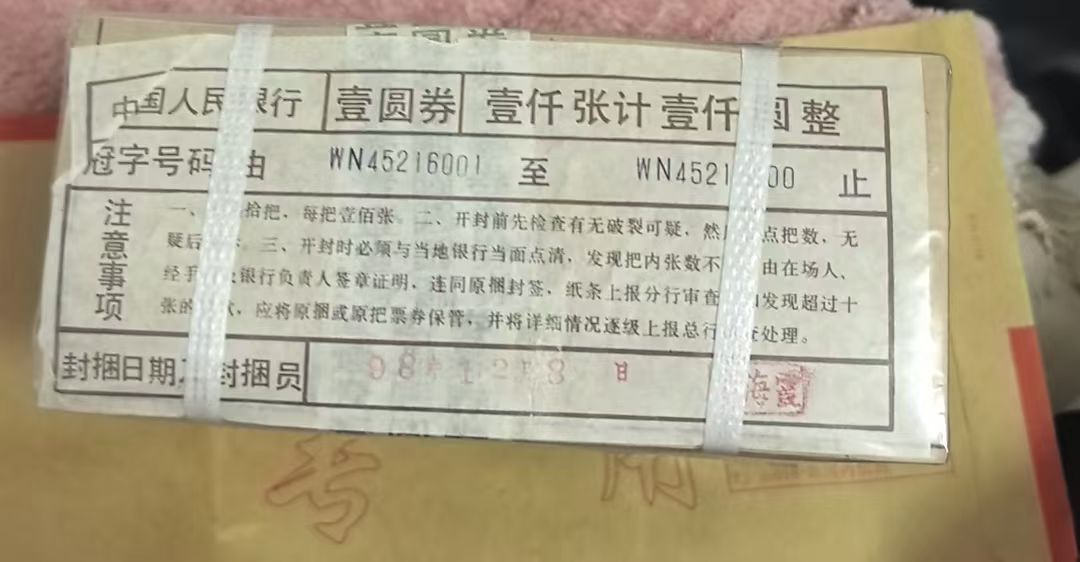 壹圆券
中国人民银行 壹圆券 壹仟张计壹仟圆整
冠字号码 由 WN45216001 至 WN4521 00 止
注意事项
一、 拾把，每把壹佰张。二、开封前先检查有无破裂可疑，然 点把数，无
疑后 。三、开封时必须与当地银行当面点清，发现把内张数不 由在场人、
经手 银行负责人签章证明，连同原捆封签，纸条上报分行审查 如发现超过十
张的 款，应将原捆或原把票券保管，并将详细情况逐级上报总行 查处理。
封捆日期 封捆员 98年12 8 日
专 用